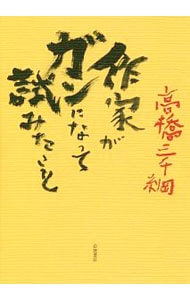 高橋三千綱
作家が
ガンになって
試みたこと
岩波書店